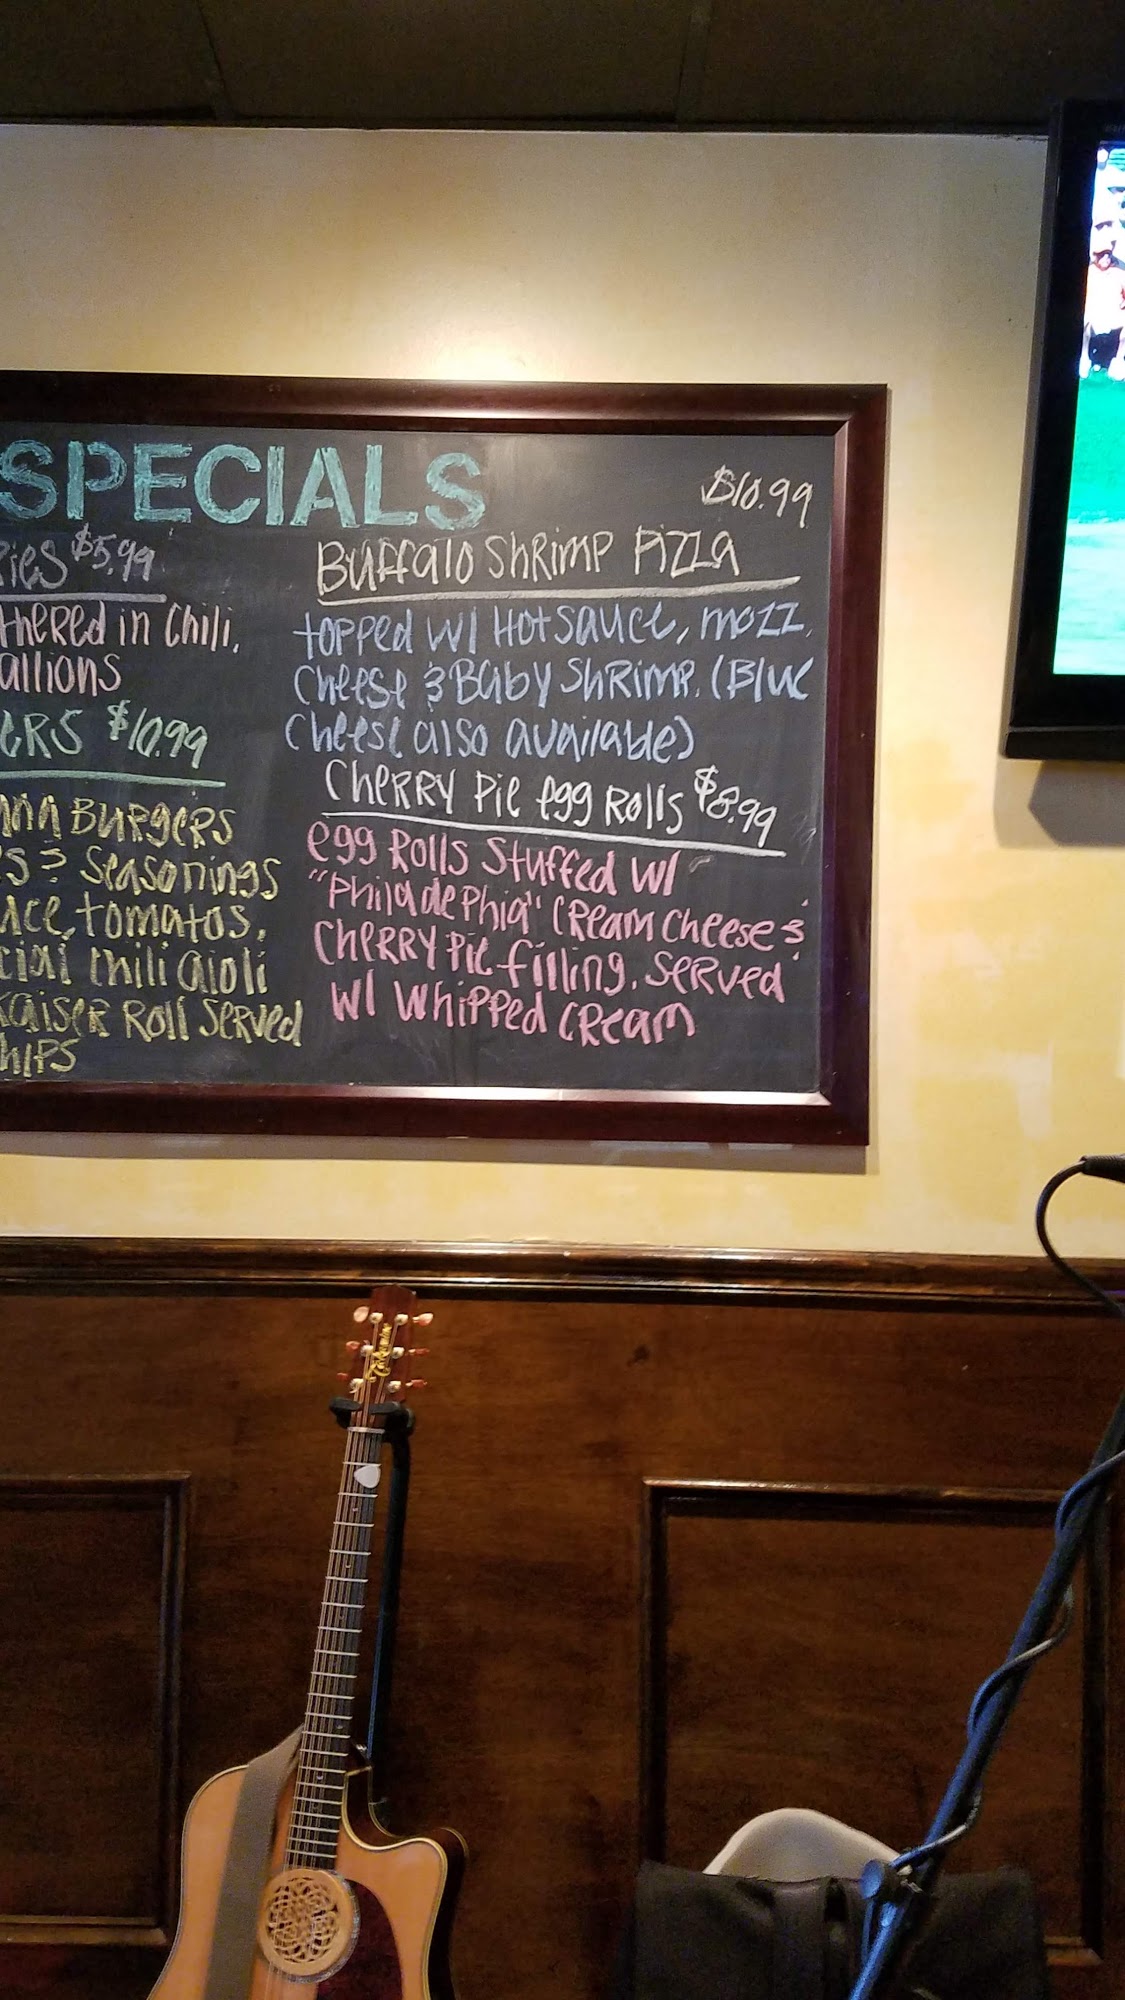 SPECIALS
$5.99
in Chili,
$10.99
BURGERS
& Seasonings
tomatos,
Chili aioli
Kaiser Roll Served
$10.99
Buffalo Shrimp Pizza
topped w/ Hot Sauce, mozz.
Cheese & Baby Shrimp. (Blue
Cheese also available)
Cherry Pie egg Rolls $8.99
egg Rolls Stuffed w/
"Philadelphia" Cream Cheese &
Cherry Pie filling. Served
w/ Whipped Cream
Takamine